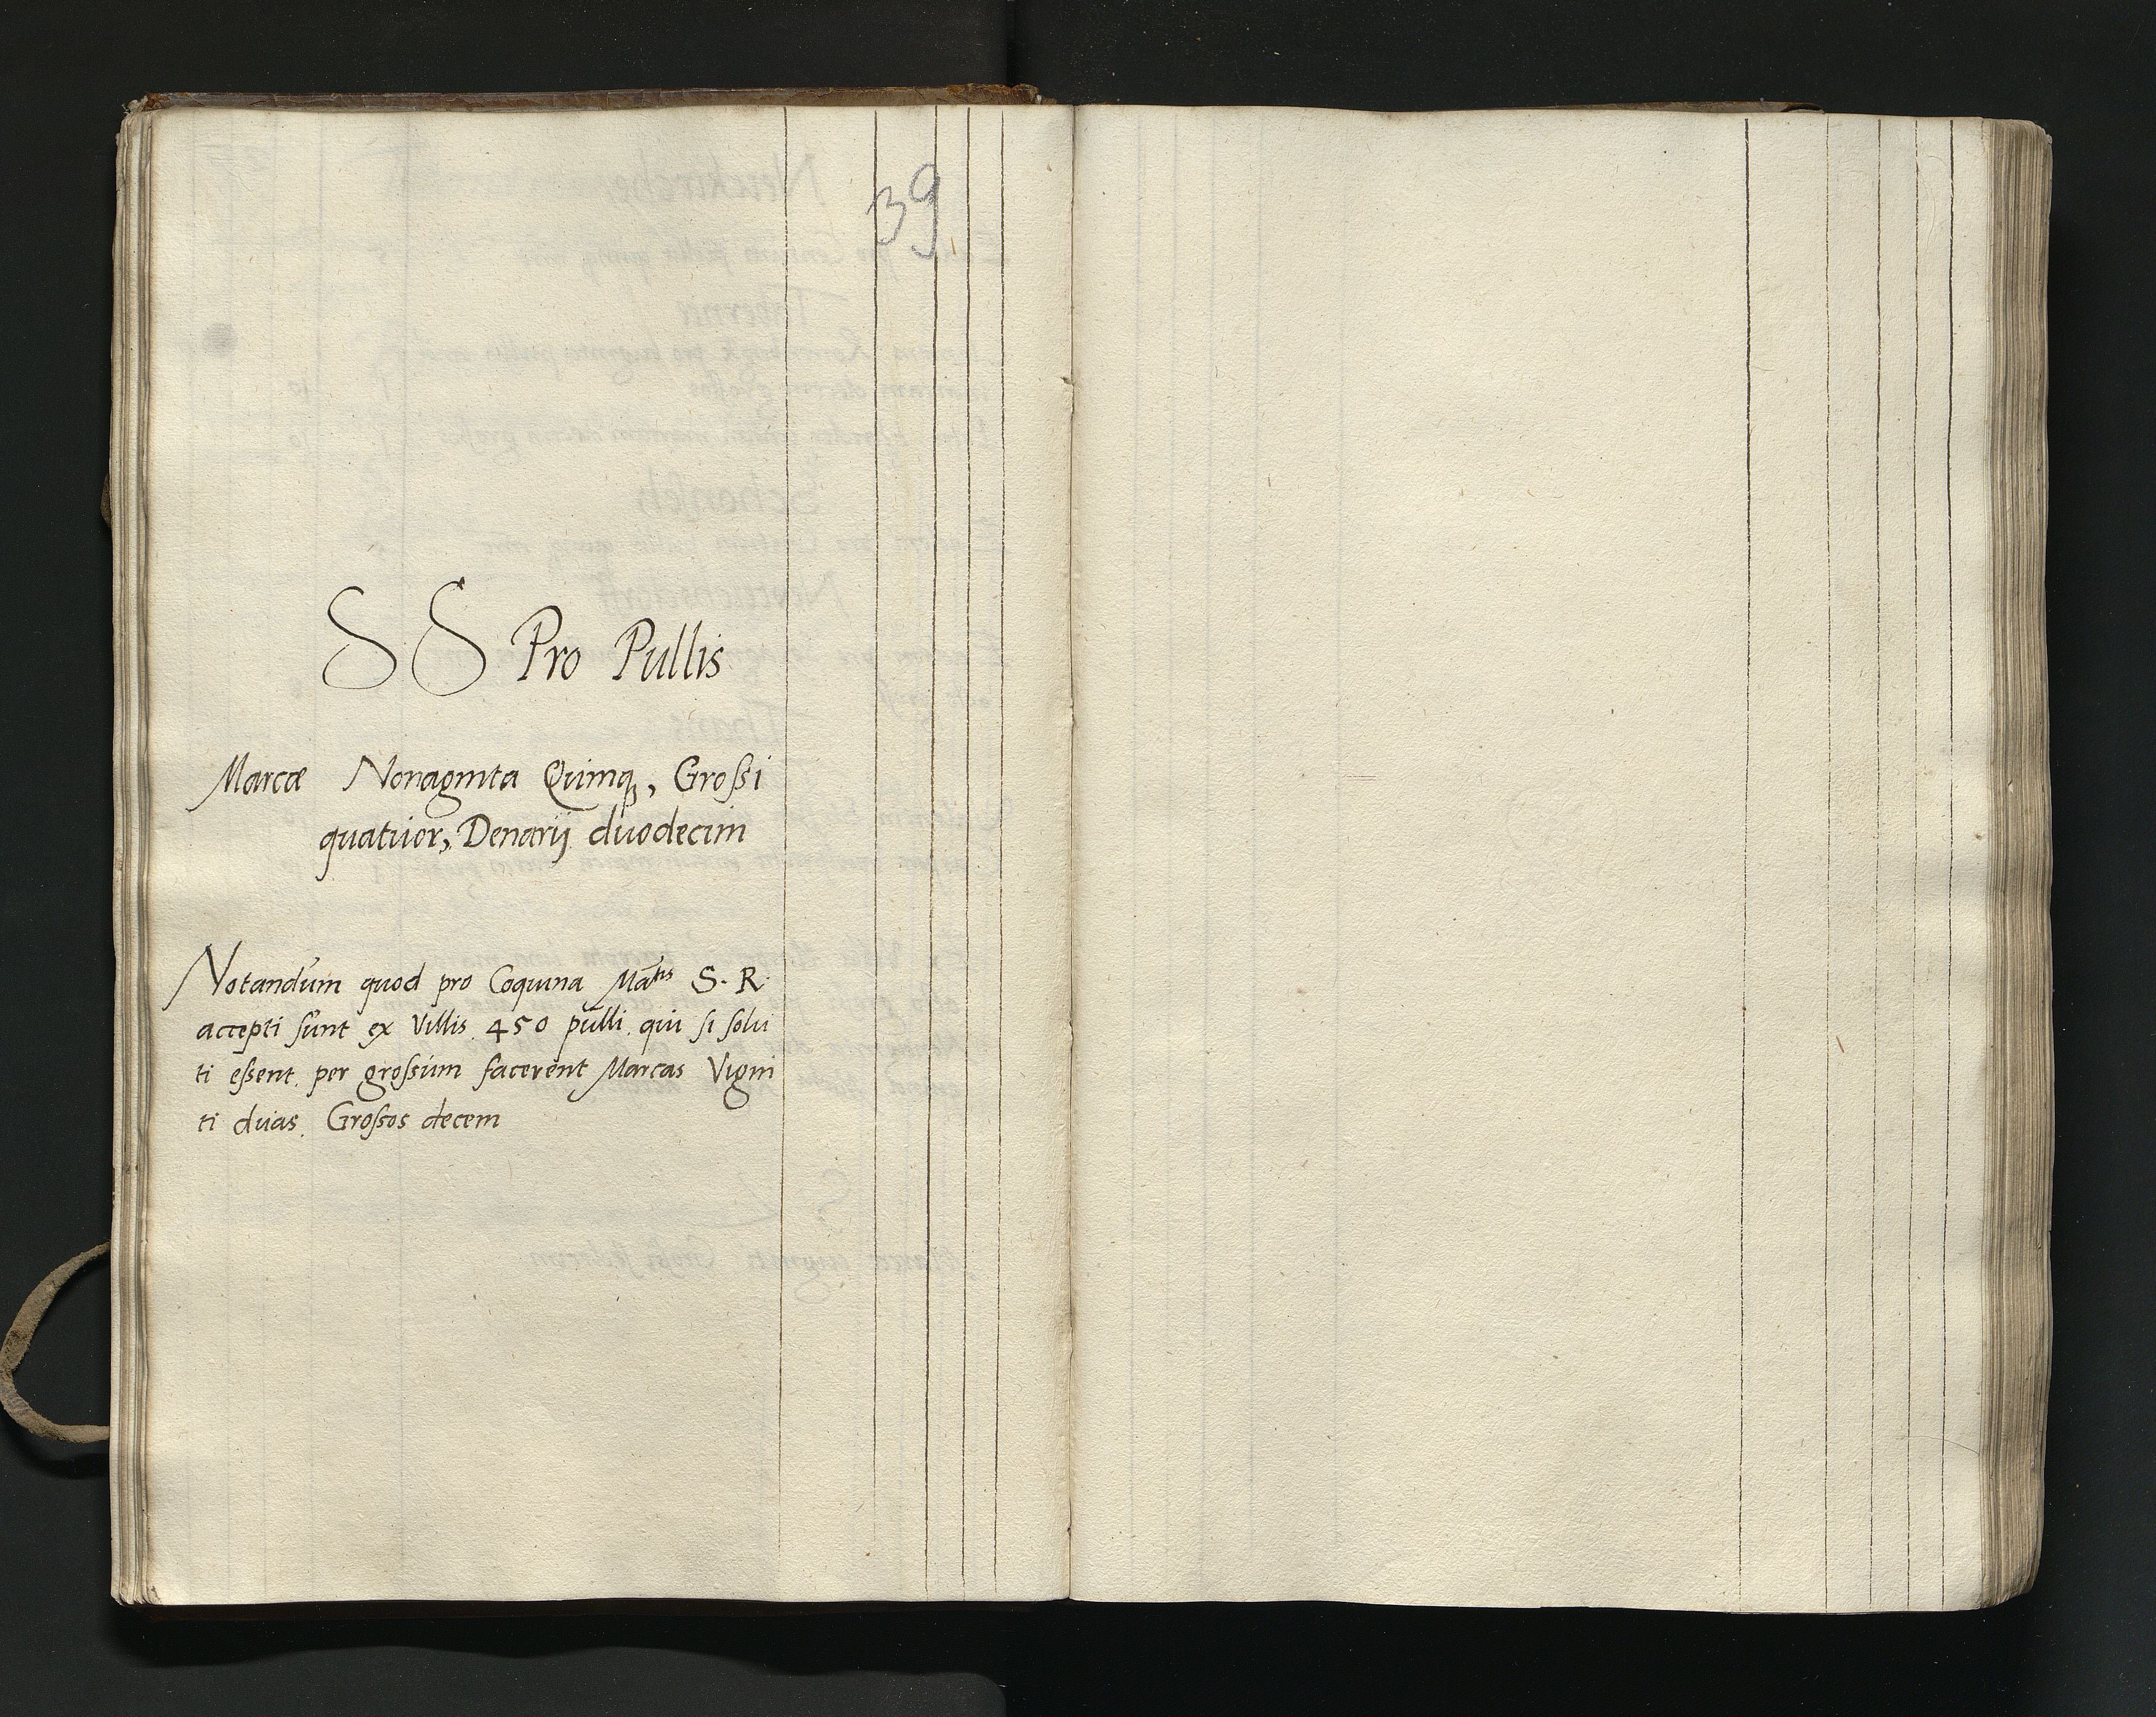 39
SS Pro Pullis
Marcæ Nonaginta Quinqꝫ, Grossi
quatuor, Denarij duodecim
Notandum quod pro Coquina Matis S. R.
accepti sunt ex Villis 450 pulli, qui si solu
ti essent, per grossum facerent Marcas Vigin
ti duas, Grossos decem